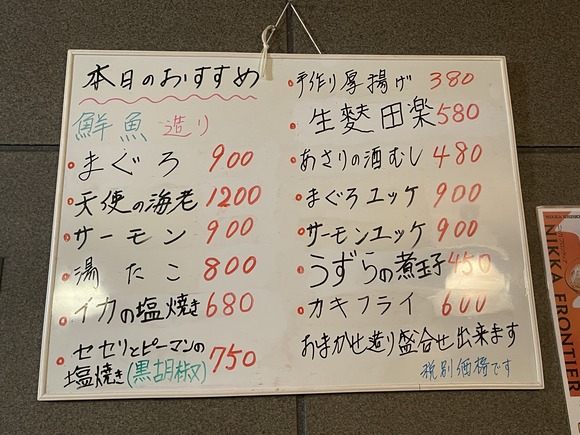 本日のおすすめ
鮮魚 造り
まぐろ 900
天使の海老 1200
サーモン 900
湯たこ 800
イカの塩焼き 680
セセリとピーマンの
塩焼き(黒胡椒) 750
手作り厚揚げ 380
生麩田楽 580
あさりの酒むし 480
まぐろユッケ 900
サーモンユッケ 900
うずらの煮玉子 450
カキフライ 600
おまかせ造り盛合せ出来ます
税別価格です
NIKKA FRONTIER